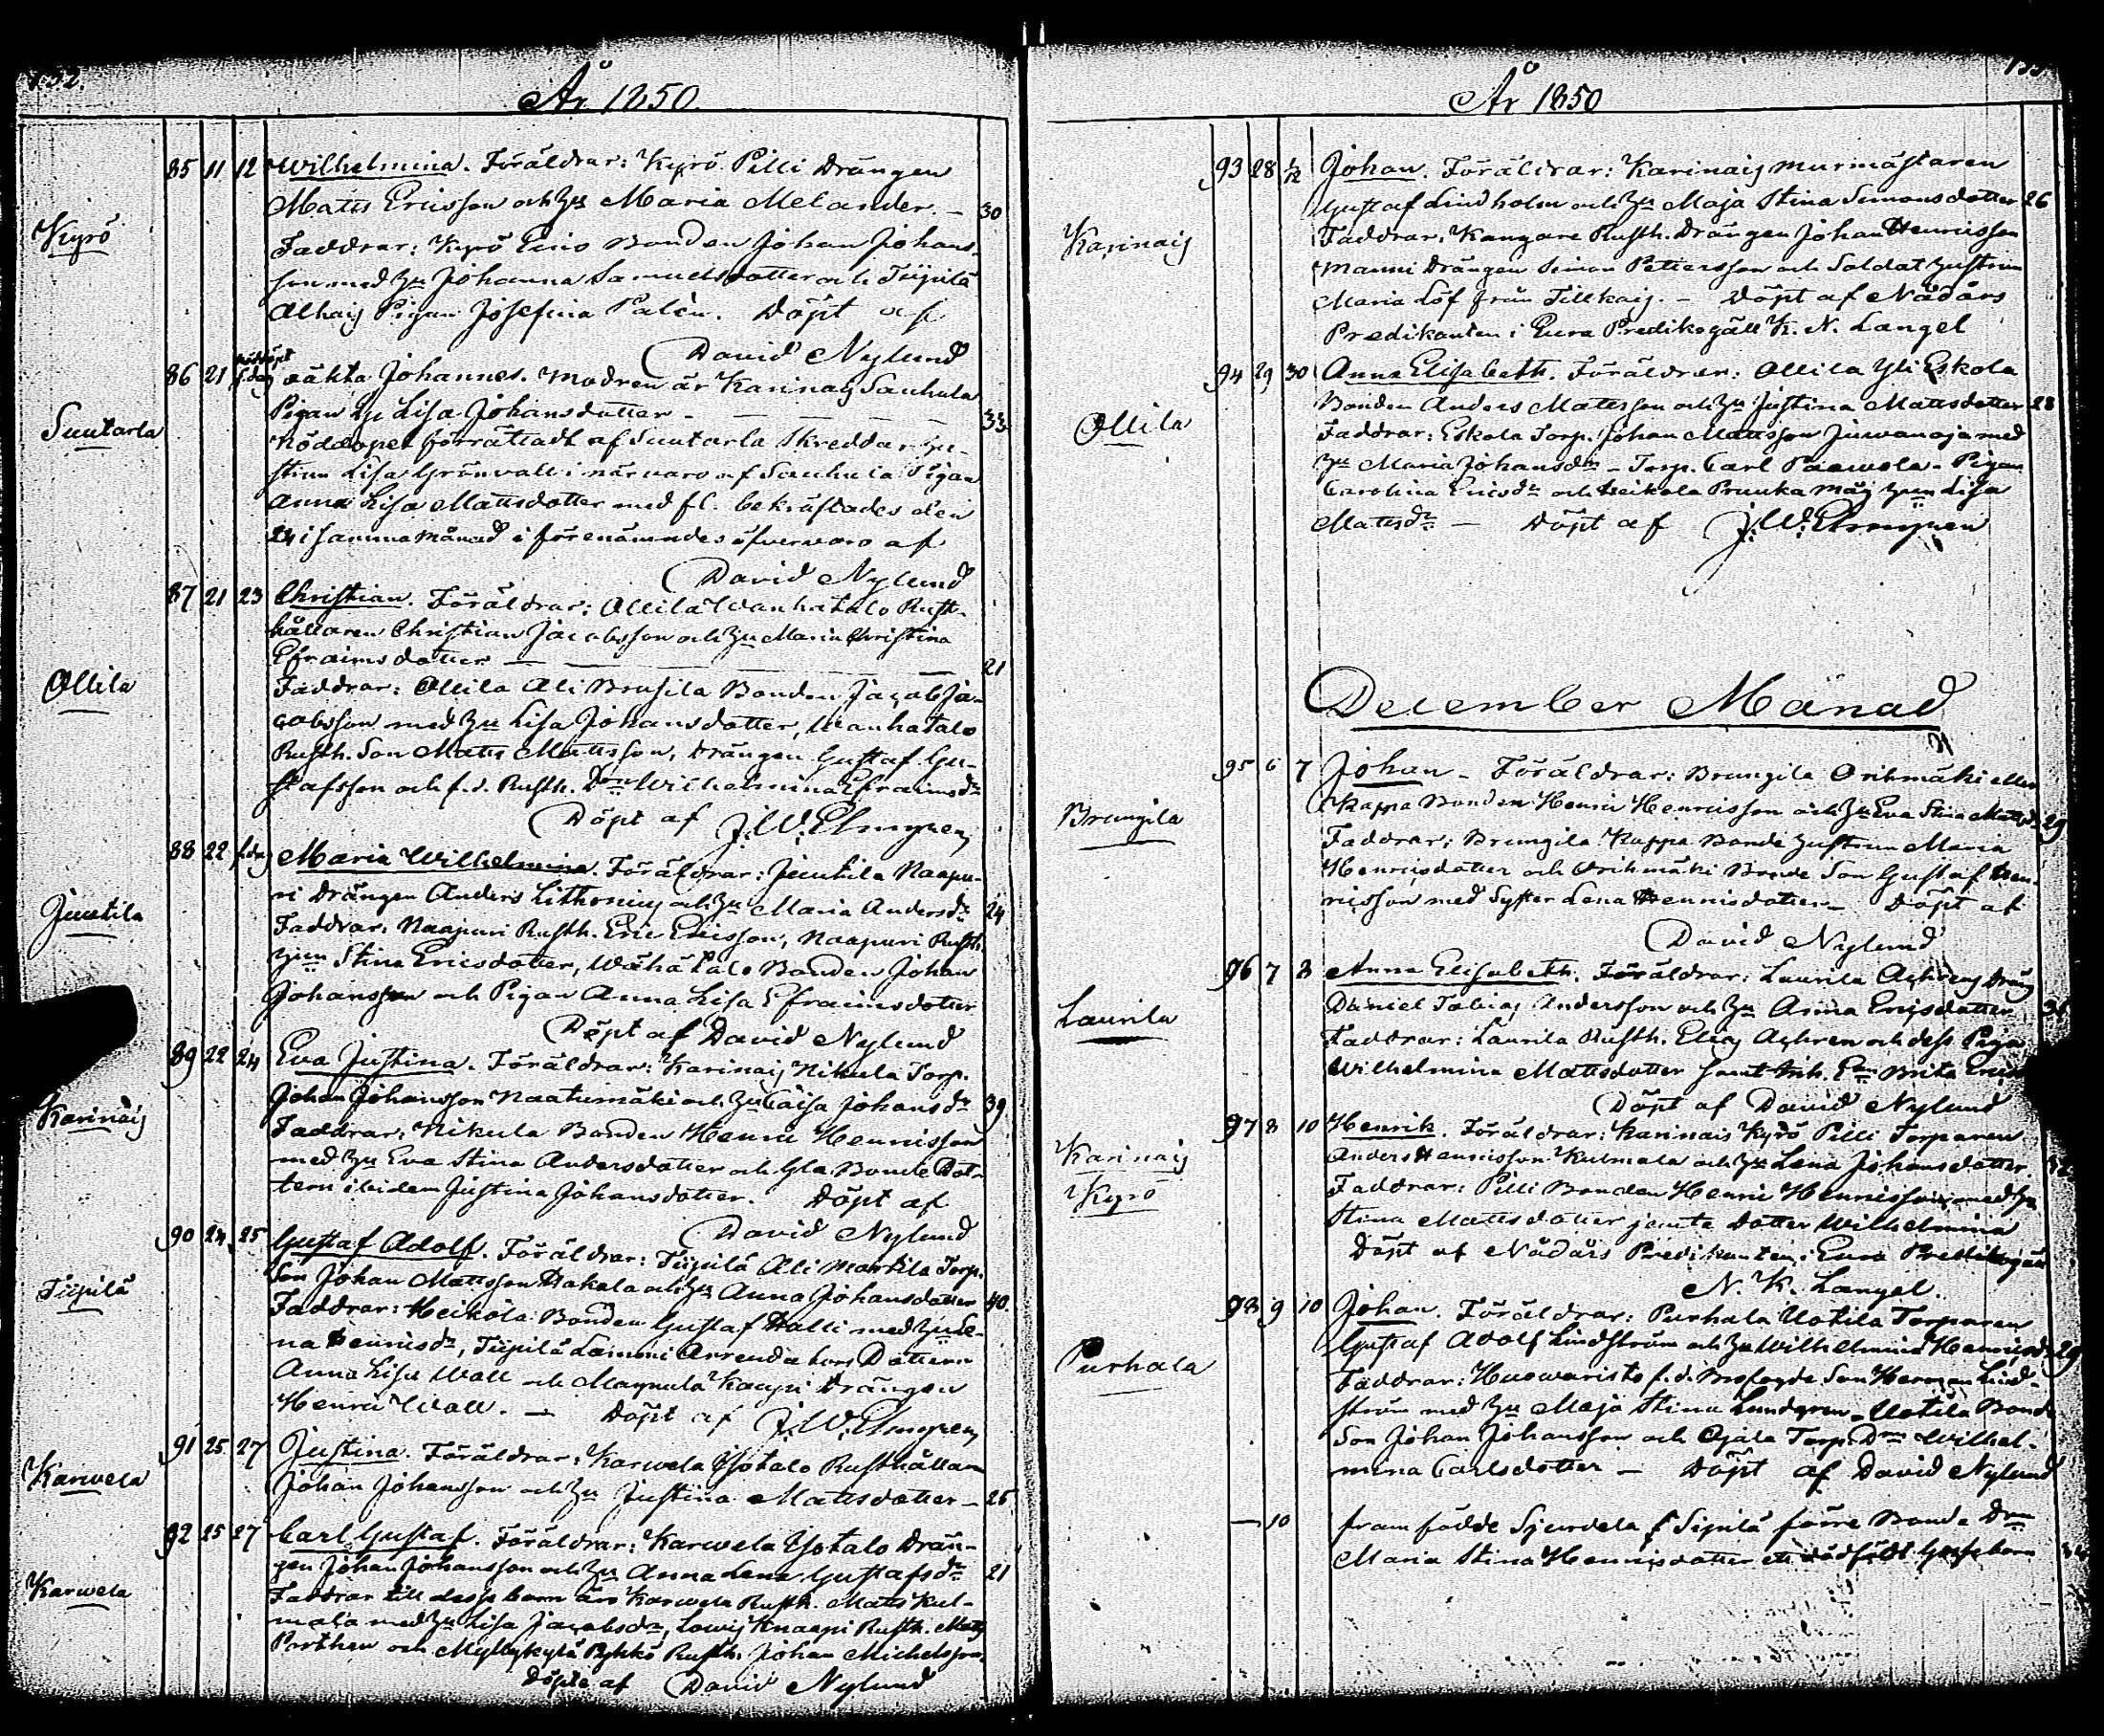 År 1850.
Kyrö
85 11 12 Wilhelmina. Föräldrar: Kyrö Pilli Drängen
Matts Ericsson och Hu Maria Melander. — 30
Faddrar: Kyrö Eino Bonden Johan Johans-
son med Hu Johanna Samuelsdotter och Tiipilä
Alhais Pigan Josefina Palèn. Döpt af
David Nylund
Suutarla
86 21 nöddöpt s.dag oäkta Johannes. Modren är Karinais Sauhula
Pigan Lisa Johansdotter — 33
Nöddopet förrättadt af Suutarla Skreddar hu-
strun Lisa Grönvall i närvaro af Sauhula Pigan
Anna Lisa Mattsdotter med fl. bekräftades den
24 i samma månad i förenämndes öfvervaro af
David Nylund
Ollila
87 21 23 Christian. Föräldrar: Ollila Wanhatalo Rust-
hållaren Christian Jacobsson och Hu Maria Christina
Efraimsdotter — 21
Faddrar: Ollila Ali Brusila Bonden Jacob Ja-
cobsson med Hu Lisa Johansdotter, Wanhatalo
Rusth. Son Matts Mattsson, Drängen Gustaf Gu-
stafsson och f.d. Rusth. Dn Wilhelmina Efraimsdr
Döpt af J. W. Elmgren
Juutila
88 22 s.dag Maria Wilhelmina. Föräldrar: Juutila Naapu-
ri Drängen Anders Lithonius och Hu Maria Andersdr 24
Faddrar: Naapuri Rusth. Eric Ericsson, Naapuri Rusth.
Hun Stina Ericsdotter, Wähätalo Bonden Johan
Johansson och Pigan Anna Lisa Efraimsdotter
Döpt af David Nylund
Karinais
89 22 24 Eva Justina. Föräldrar: Karinais Nikula Torp.
Johan Johansson Naatumäki och Hu Caisa Johansdr 39
Faddrar: Nikula Bonden Henric Henricsson
med Hu Eva Stina Andersdotter och Gla Bonde Dot-
tern ibidem Justina Johansdotter. Döpt af
David Nylund
Tiipilä
90 24 25 Gustaf Adolf. Föräldrar: Tiipilä Ali Marttila Torp.
Son Johan Mattsson Hakala och Hu Anna Johansdotter 40
Faddrar: Heikola Bonden Gustaf Halli med Hu Le-
na Henricsdr, Tiipilä Lammi Arrendators Dottern
Anna Lisa Wall och Maynula Kaupi Drängen
Henric Wall. — Döpt af J. W. Elmgren
Karwela
91 25 27 Justina. Föräldrar: Karwela Isotalo Rusthållaren
Johan Johansson och Hu Justina Mattsdotter — 25
Karwela
92 25 27 Carl Gustaf. Föräldrar: Karwela Isotalo Drän-
gen Johan Johansson och Hu Anna Lena Gustafsdr 21
Faddrar till desse barn äro Karwela Rusth. Matts Kul-
mala med Hu Lisa Jacobsdr, Lowis Knaapi Rusth. Matts
Parthen och Myllykylä Pyhkö Rusth. Johan Michelsson
Döpte af David Nylund
År 1850
Karinais
93 28 1/12 Johan. Föräldrar: Karinais Murmästaren
Gustaf Lindholm och Hu Maja Stina Simonsdotter 26
Faddrar: Kangare Rusth. Drängen Johan Henricsson
Manni Drängen Simon Pettersson och Soldat Hustrun
Maria Löf från Tillkais. — Döpt af Nådårs
Predikanten i Eura Predikogäll K. N. Langel
Ollila
94 29 30 Anna Elisabeth. Föräldrar: Ollila Yli Eskola
Bonden Anders Mattsson och Hu Justina Mattsdotter 28
Faddrar: Eskola Torp. Johan Mattsson Juwanoja med
Hu Maria Johansdr — Torp. Carl Paawola — Pigan
Carolina Ericsdr och Heikola Pruuka Måg Hun Lisa
Mattsdr — Döpt af J. W. Elmgren
December Månad
Brungila
95 6 7 Johan — Föräldrar: Brungila Orihmäki eller
Kappa Bonden Henric Henricsson och Hu Eva Stina Mattsdr 29
Faddrar: Brungila Kappa Bonde Hustrun Maria
Henricsdotter och Orihmäki Bonde Son Gustaf Hen-
ricsson med Syster Lena Henricsdotter — Döpt af
David Nylund
Laurila
96 7 8 Anna Elisabeth. Föräldrar: Laurila Achrens Dräng
Daniel Tobias Andersson och Hu Anna Ericsdotter
Faddrar: Laurila Rusth. Elias Achren och dess Piga
Wilhelmina Mattsdotter samt Inh. En Brita Erics
Döpt af David Nylund
Karinais
Kyrö
97 8 10 Henrik. Föräldrar: Karinais Kyrö Pilli Torparen
Anders Henricsson Kulmala och Hu Lena Johansdotter.
Faddrar: Pilli Bonden Henric Henricsson med Hu
Stina Mattsdotter jemte Dotter Wilhelmina
Döpt af Nådårs Predikanten i Eura Predikogäll
N. K. Langel.
Purhala
98 9 10 Johan. Föräldrar: Purhala Uotila Torparen
Gustaf Adolf Lindström och Hu Wilhelmina Henricsdr 29
Faddrar: Huowaristo f.d. Brofogde Son Herman Lind-
ström med Hu Maja Stina Lundgren — Uotila Bonde
Son Johan Johansson och Ojala Torp. Dn Wilhel-
mina Carlsdotter — Döpt af David Nylund
— 10 framfödde Sjurdela Sipilä förre Bonde Dn
Maria Stina Henricsdotter ett dödfödt Gossebarn